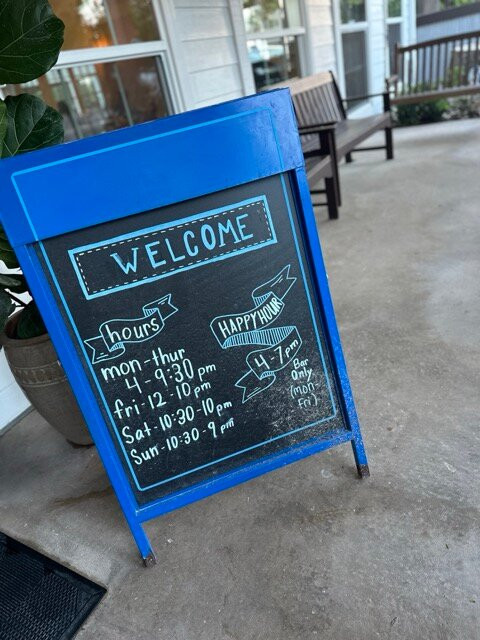 WELCOME
hours
mon-thur
4-9:30pm
fri-12-10pm
Sat-10:30-10pm
Sun-10:30-9pm
HAPPY HOUR
4-7pm
Bar
Only
(mon-
Fri)